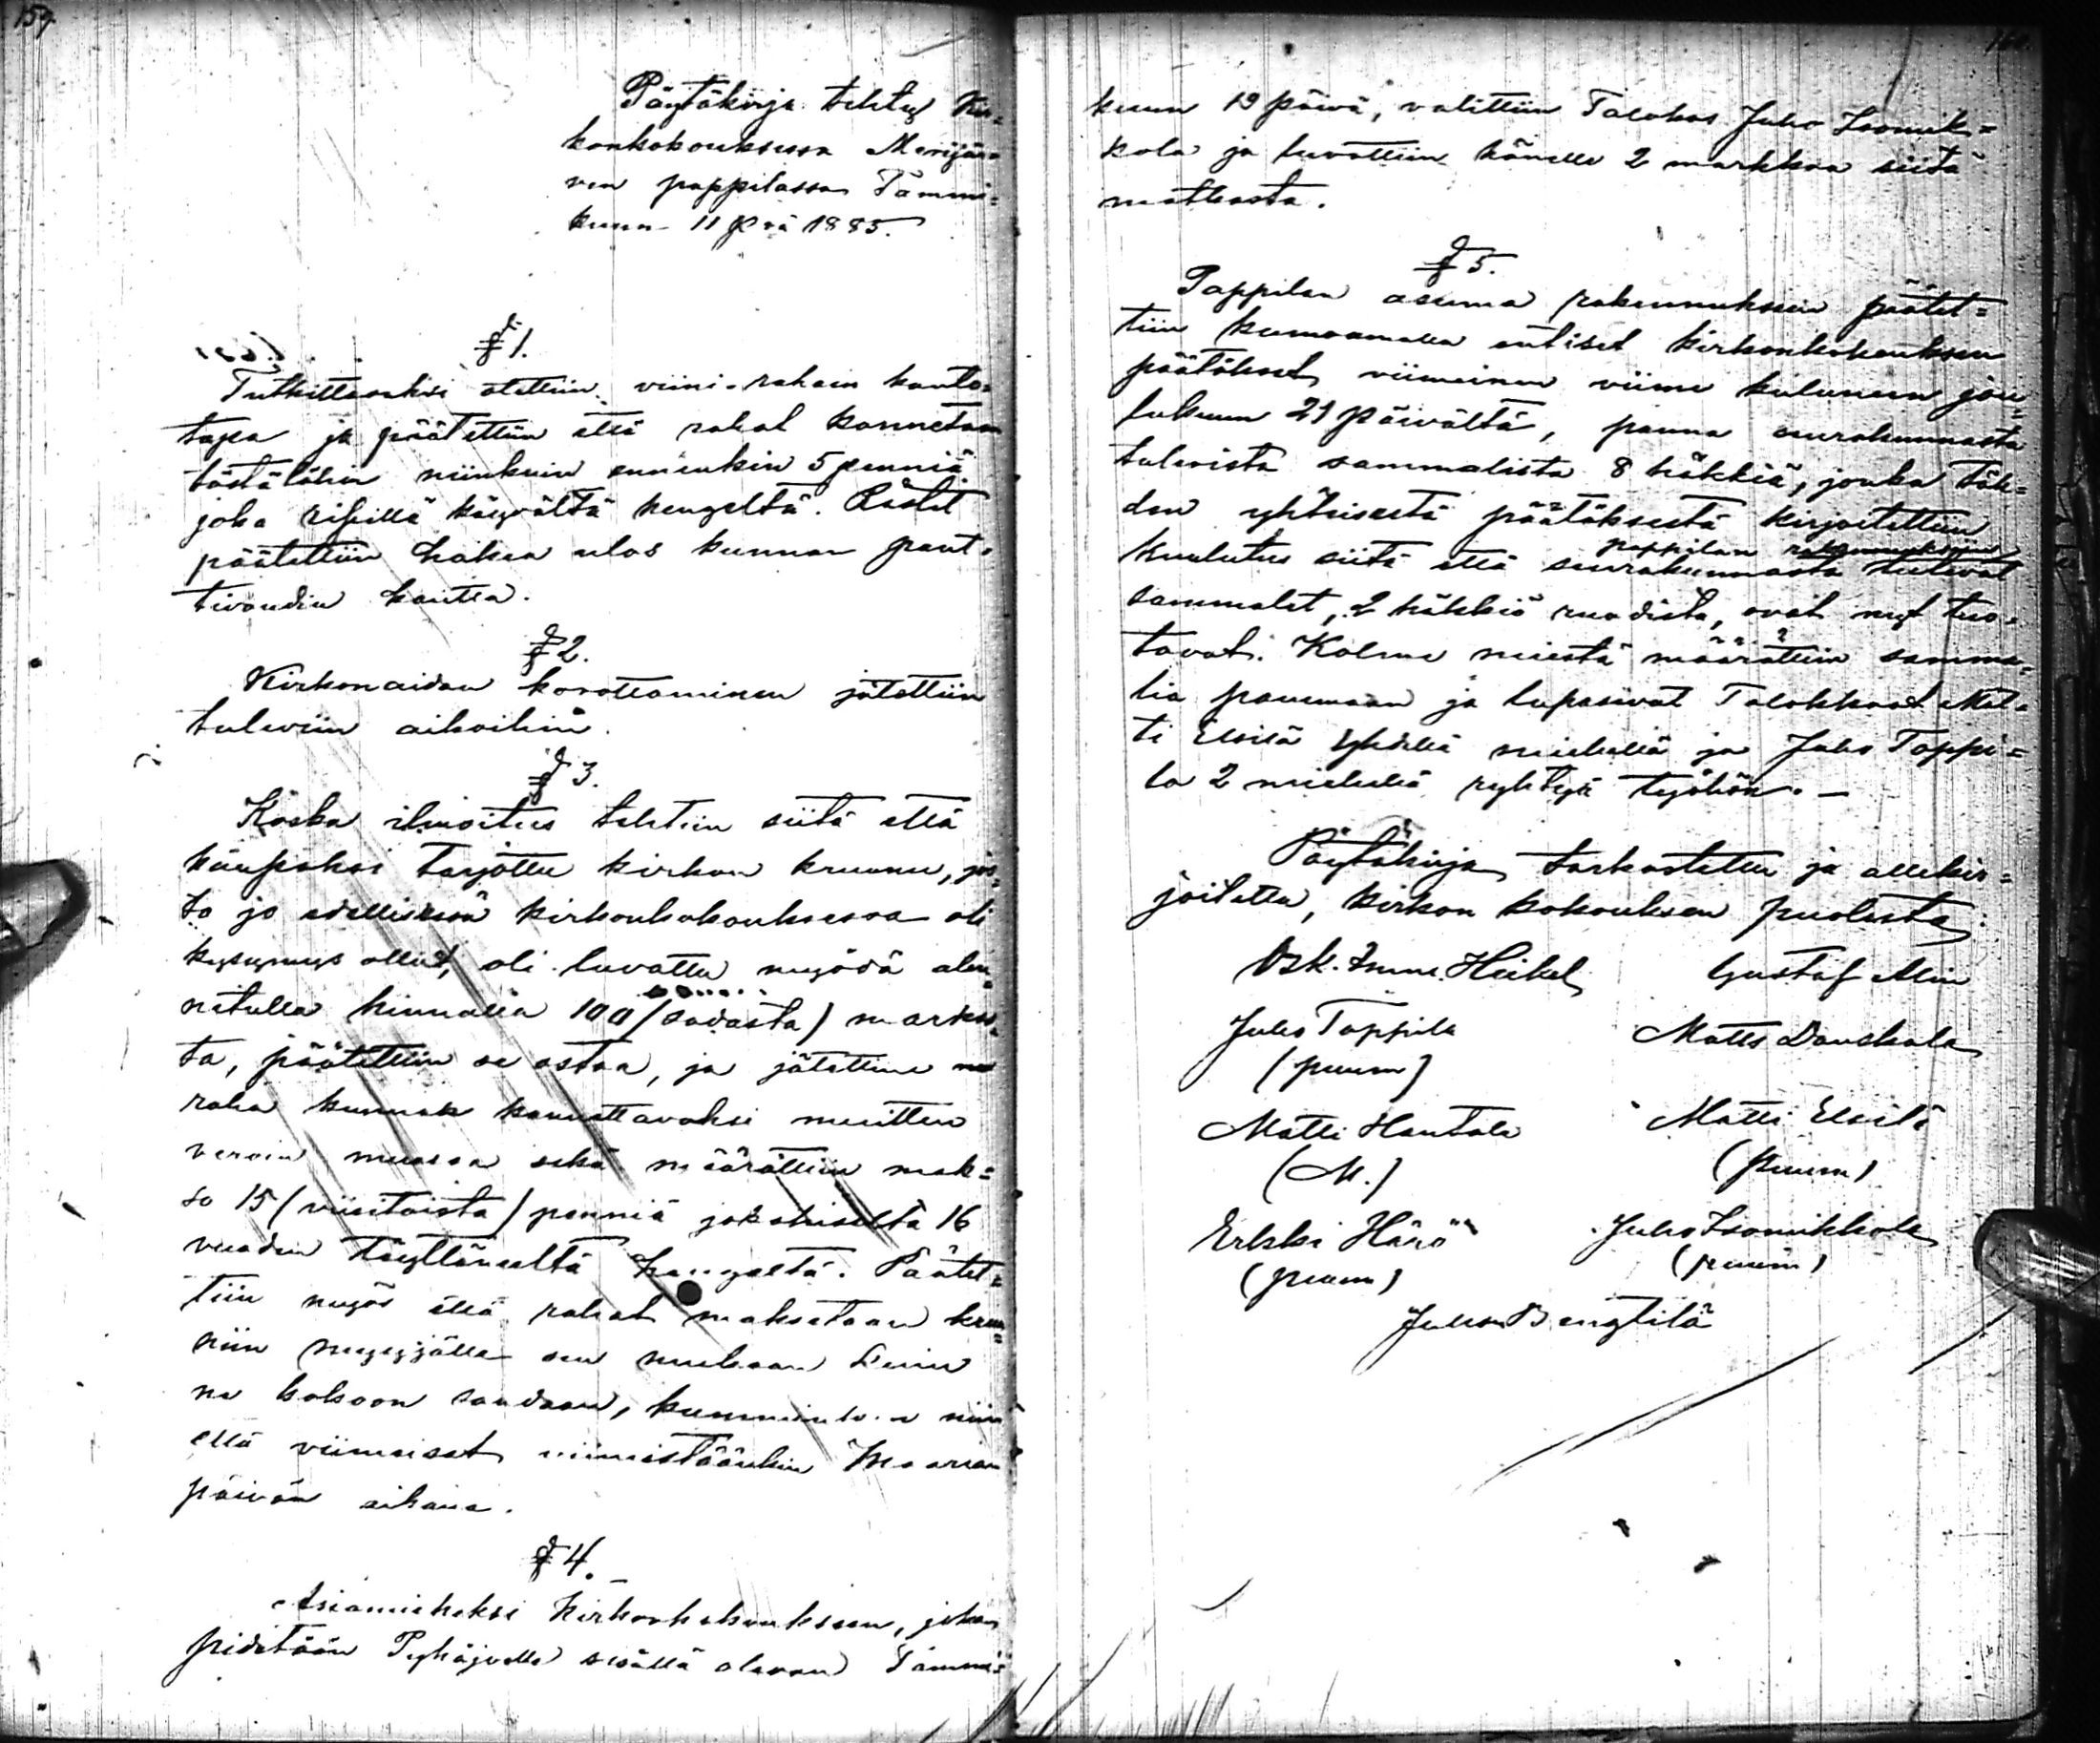 159
Pöytäkirja tehty Kir=
konkokouksessa Merijär=
ven pappilassa Tammi=
kuun 11 p:nä 1885.
§ 1.
Tutkittavaksi otettiin viini-rahain kanto=
tapa ja päätettiin että rahat kannetaan
tästälähin niinkuin ennenkin 5 penniä
joka ripillä käyvältä hengeltä. Rästit
päätettiin hakea ulos kunnan
kautta.
§ 2.
Kirkonaidan korottaminen jätettiin
tuleviin aikoihin.
§ 3.
Koska ilmoitus tehtiin siitä että
kaupaksi tarjottu kirkon kruunu, jos=
ta jo edellisessä kirkonkokouksessa oli
kysymys ollut, oli luvattu myödä alen=
netulla hinnalla 100 (sadasta) markas=
ta, päätettiin se ostaa, ja jätettiin
raha kunnan kannettavaksi muitten
veroin muassa sekä määrättiin mak=
so 15 (viisitoista) penniä jokahiselta 16
vuoden täyttäneeltä hengeltä. Päätet=
tiin myös että rahat maksetaan kruu=
nun myyjälle sen mukaan kuin
ne kokoon saadaan, kumminkin niin
että viimeiset viimeistäänkin Maarian
päivän aikana.
§ 4.
Asiamieheksi Kirkonkokoukseen, joka
pidetään Pyhäjoella sisällä olevan Tammi=
160
kuun 19 päivä, valittiin Talokas Juho Isomik=
kola ja luvattiin hänelle 2 markkaa siitä
matkasta.
§ 5.
Pappilan asuma rakennukseen päätet=
tiin kumoamalla entiset kirkonkokouksen
päätökset, viimeinen viime kuluneen jou=
lukuun 21 päivältä, panna seurakunnasta
tulevista sammalista 8 häkkiä, jonka täh=
den yhteisestä päätöksestä kirjoitettiin
pappilan rakennukseen
kuulutus siitä että seurakunnasta tulevat
sammalet, 2 häkkiä ruodista, ovat nyt tuo=
tavat. Kolme miestä määrättiin samma=
lia panemaan ja lupasivat Talokkaat Mat=
ti Essilä yhdellä miehellä ja Juho Toppi=
la 2 miehellä ryhtyä työhön. —
Pöytäkirja tarkastettu ja allekir=
joitettu, kirkon kokouksen puolesta:
Osk. Imm. Heikel Gustaf Alin
Juho Toppila Matts Danskala
(puum)
Matti Hantala Matti Essilä
(M.) (puum)
Erkki Härö Juho Isomikkola
(puum) (puum)
Juho Bengtilä